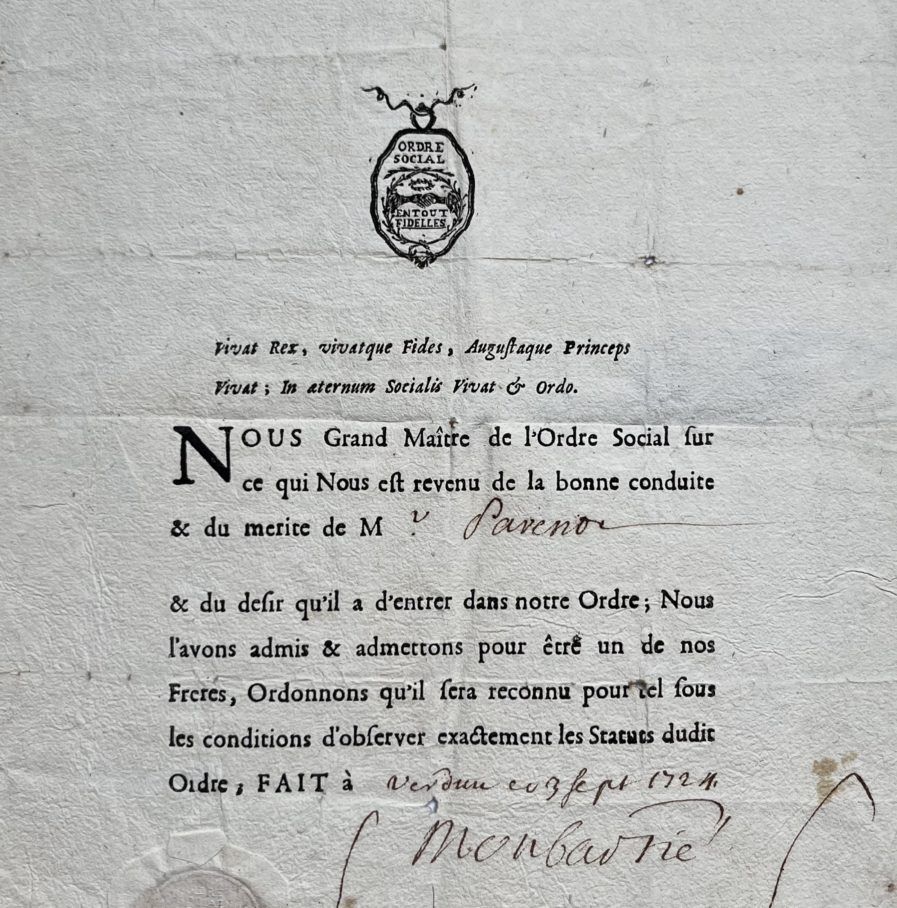 ORDRE
SOCIAL
EN TOUT
FIDELLES
Vivat Rex, vivatque Fides, Auguſtaque Princeps
Vivat; In æternum Socialis Vivat & Ordo.
NOUS Grand Maître de l'Ordre Social ſur
ce qui Nous eſt revenu de la bonne conduite
& du merite de M r Pavenor
& du deſir qu'il a d'entrer dans notre Ordre; Nous
l'avons admis & admettons pour être un de nos
Freres, Ordonnons qu'il ſera reconnu pour tel ſous
les conditions d'obſerver exactement les Statuts dudit
Ordre, FAIT à Verdun ce 3 ſept 1724.